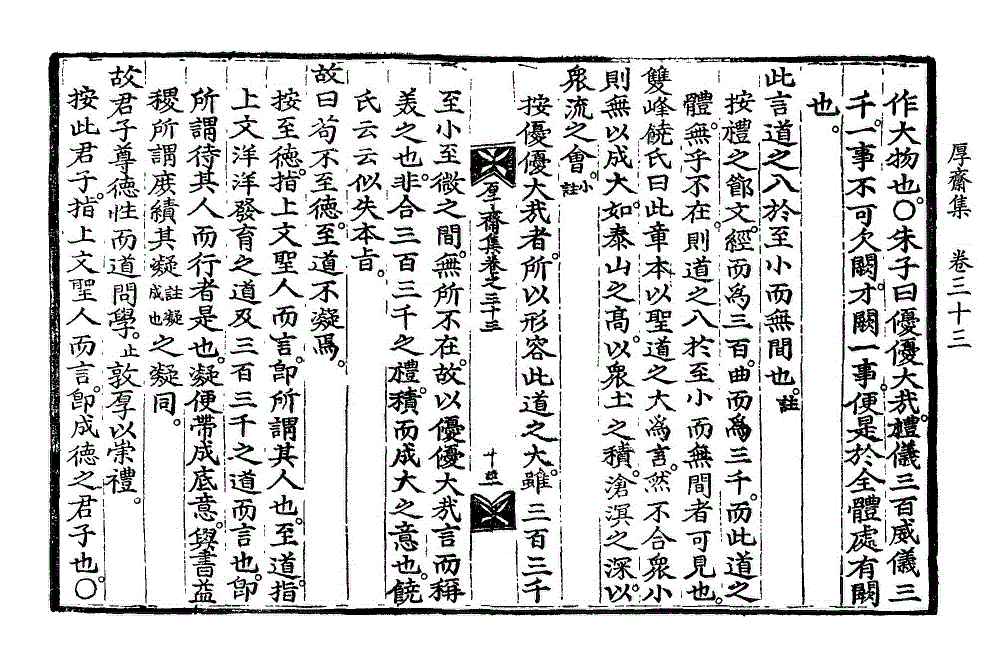 厚齋集　卷三十三
作大物也。○朱子曰優優大哉。禮儀三百威儀三
千。一事不可欠闕。才闕一事。便是於全體處有闕
也。
此言道之入於至小而無間也。註
按禮之節文。經而爲三百。曲而爲三千。而此道之
體。無乎不在。則道之入於至小而無間者可見也。
雙峰饒氏曰此章本以聖道之大爲言。然不合衆小
則無以成大。如泰山之高。以衆土之積。滄溟之深。以
衆流之會。小註
按優優大哉者。所以形容此道之大。雖三百三千
厚齋集卷之三十三
至小至微之間。無所不在。故以優優大哉言而稱
美之也。非合三百三千之禮。積而成大之意也。饒
氏云云似失本旨。
故曰苟不至德。至道不凝焉。
按至德。指上文聖人而言。卽所謂其人也。至道。指
上文洋洋發育之道及三百三千之道而言也。卽
所謂待其人而行者是也。凝便帶成底意。與書益
稷所謂庶績其凝註凝成也之凝同。
故君子尊德性而道問學。止敦厚以崇禮。
按此君子。指上文聖人而言。卽成德之君子也。○